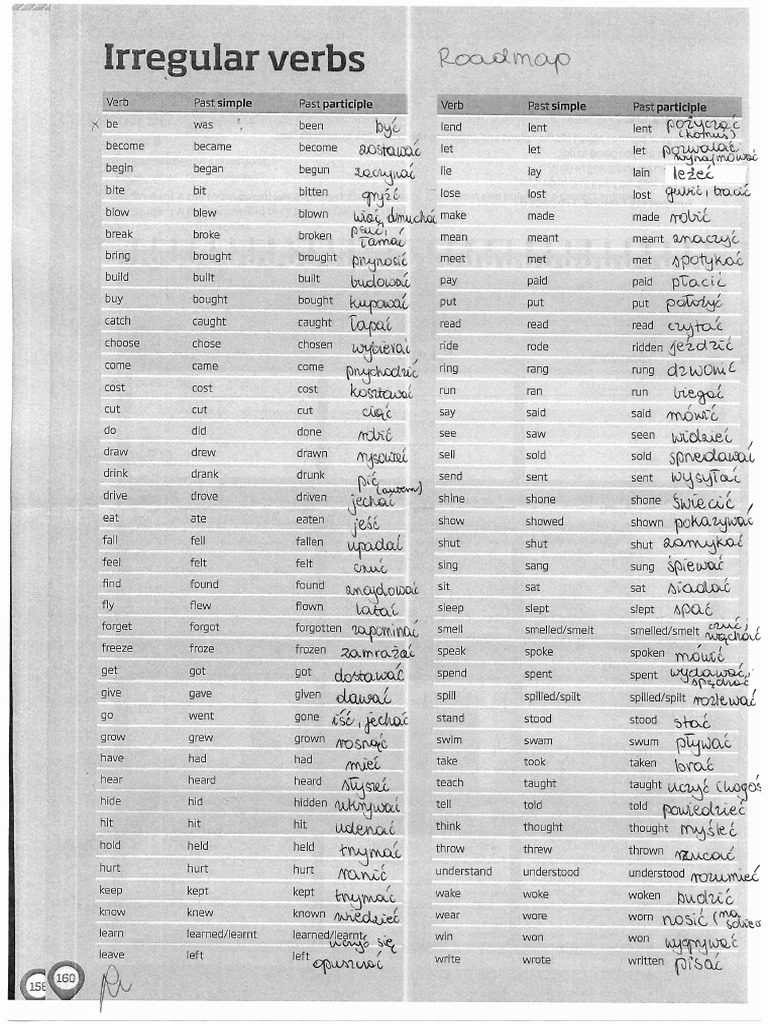 Irregular verbs
Roadmap
Verb Past simple Past participle
be was been być
become became become zostawać
begin began begun zaczynać
bite bit bitten gryźć
blow blew blown wiać, dmuchać
break broke broken psuć, łamać
bring brought brought przynosić
build built built budować
buy bought bought kupować
catch caught caught łapać
choose chose chosen wybierać
come came come przychodzić
cost cost cost kosztować
cut cut cut ciąć
do did done robić
draw drew drawn rysować
drink drank drunk pić
drive drove driven (autem) jechać
eat ate eaten jeść
fall fell fallen upadać
feel felt felt czuć
find found found znajdować
fly flew flown latać
forget forgot forgotten zapominać
freeze froze frozen zamrażać
get got got dostawać
give gave given dawać
go went gone iść, jechać
grow grew grown rosnąć
have had had mieć
hear heard heard słyszeć
hide hid hidden ukrywać
hit hit hit uderzać
hold held held trzymać
hurt hurt hurt ranić
keep kept kept trzymać
know knew known wiedzieć
learn learned/learnt learned/learnt uczyć się
leave left left opuszczać
Verb Past simple Past participle
lend lent lent pożyczać (komuś)
let let let pozwalać wynajmować
lie lay lain leżeć
lose lost lost gubić, tracić
make made made robić
mean meant meant znaczyć
meet met met spotykać
pay paid paid płacić
put put put położyć
read read read czytać
ride rode ridden jeździć
ring rang rung dzwonić
run ran run biegać
say said said mówić
see saw seen widzieć
sell sold sold sprzedawać
send sent sent wysyłać
shine shone shone świecić
show showed shown pokazywać
shut shut shut zamykać
sing sang sung śpiewać
sit sat sat siadać
sleep slept slept spać
smell smelled/smelt smelled/smelt czuć, wąchać
speak spoke spoken mówić
spend spent spent wydawać, spędzać
spill spilled/spilt spilled/spilt rozlewać
stand stood stood stać
swim swam swum pływać
take took taken brać
teach taught taught uczyć (kogoś
tell told told powiedzieć
think thought thought myśleć
throw threw thrown rzucać
understand understood understood rozumieć
wake woke woken budzić
wear wore worn nosić (na sobie
win won won wygrywać
write wrote written pisać
158 160